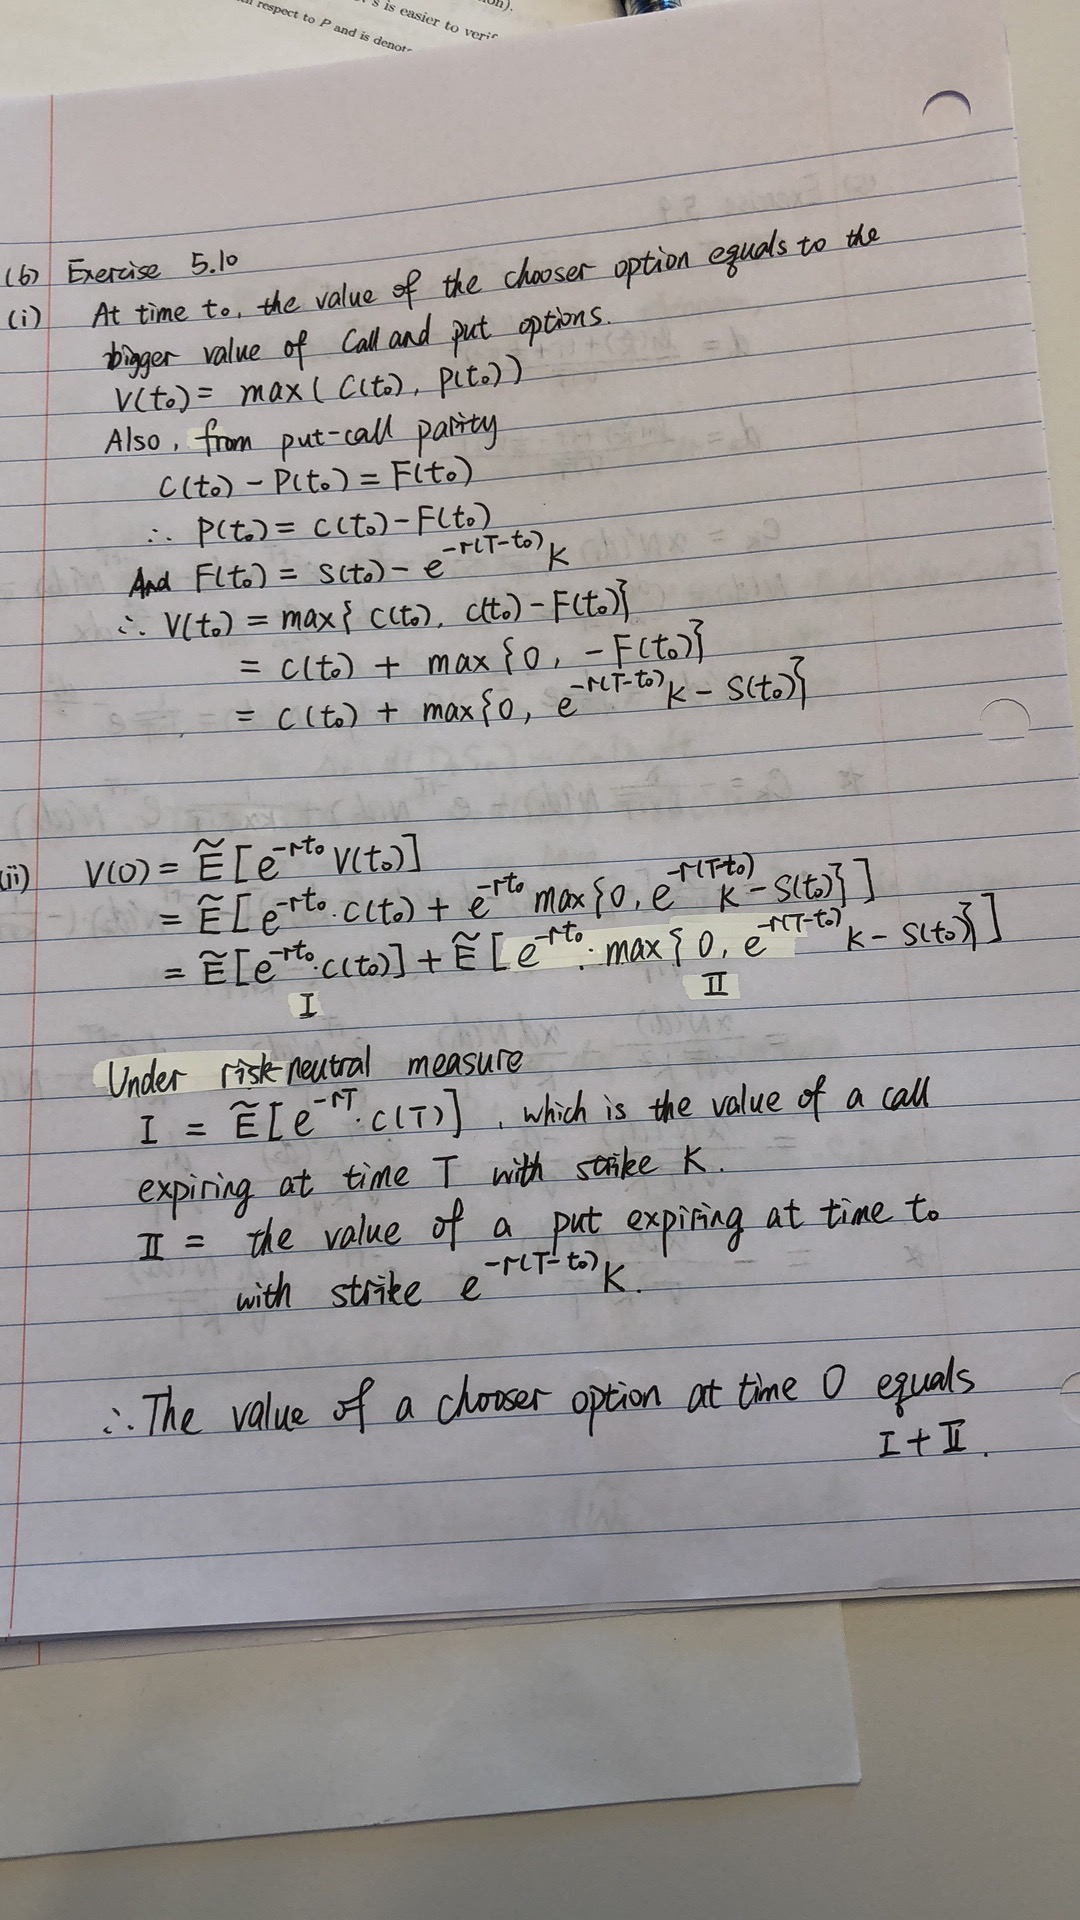 s is easier to verif
respect to P and is denot
(6) Exercise 5.10
(i) At time t₀, the value of the chooser option equals to the
bigger value of Call and put options.
V(t₀) = max ( C(t₀), P(t₀))
Also, from put-call parity
C(t₀) - P(t₀) = F(t₀)
∴ P(t₀) = C(t₀) - F(t₀)
And F(t₀) = S(t₀) - e^{-r(T-t₀)} K
∴ V(t₀) = max{ C(t₀), C(t₀) - F(t₀)}
= C(t₀) + max {0, -F(t₀)}
= C(t₀) + max{0, e^{-r(T-t₀)} K - S(t₀)}
(ii) V(0) = Ẽ [e^{-rt₀} V(t₀)]
= Ẽ [ e^{-rt₀} · C(t₀) + e^{-rt₀} max{0, e^{-r(T-t₀)} K - S(t₀)} ]
= Ẽ [e^{-rt₀} · C(t₀)] + Ẽ [ e^{-rt₀} · max{ 0, e^{-r(T-t₀)} K - S(t₀)} ]
I II
Under risk-neutral measure
I = Ẽ [ e^{-rT} · C(T) ], which is the value of a call
expiring at time T with strike K.
II = the value of a put expiring at time t₀
with strike e^{-r(T-t₀)} K.
∴ The value of a chooser option at time 0 equals
I + II.